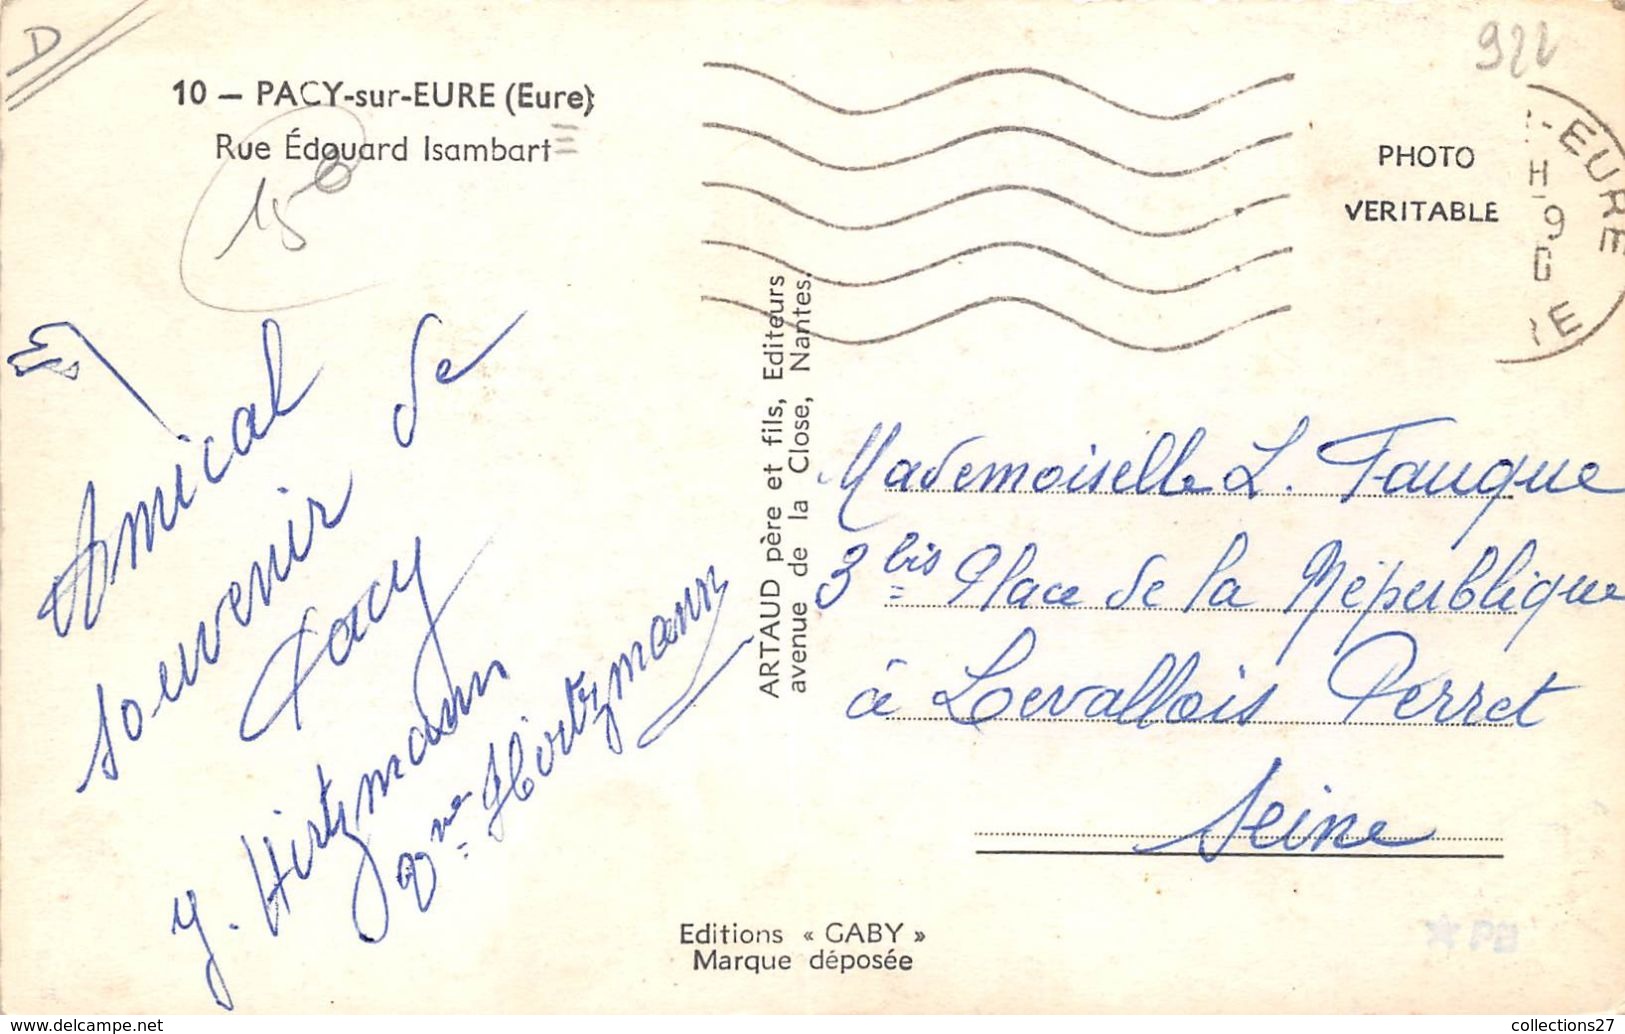 D
922
10 — PACY-sur-EURE (Eure)
Rue Édouard Isambart
PHOTO
VERITABLE
-EURE
H
9
ARTAUD père et fils, Editeurs
avenue de la Close, Nantes.
Amical
souvenir de
Pacy
Y. Hirtzmann
Mme Hirtzmann
Mademoiselle L. Fauque
3 bis Place de la République
à Levallois Perret
Seine
Editions « GABY »
Marque déposée
PB
collections27